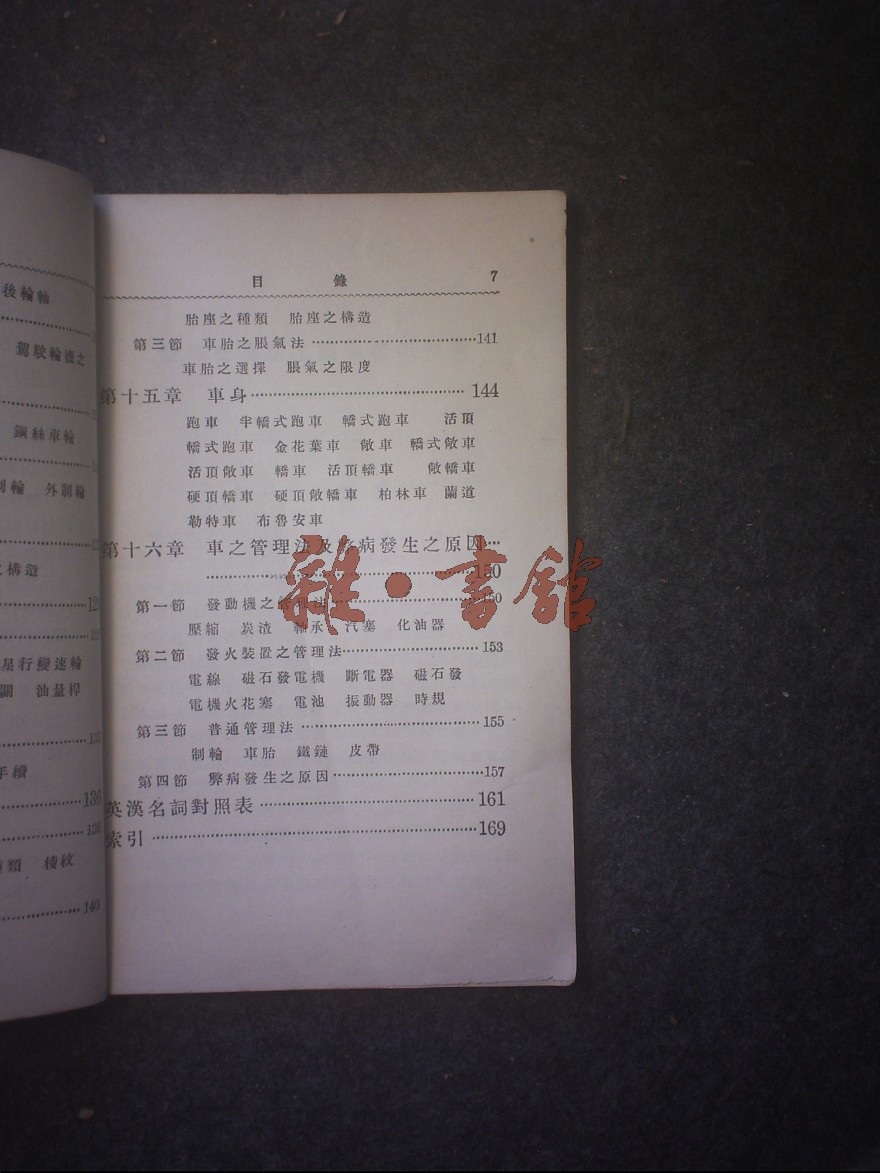 後輪軸
駕駛輪機之
鋼絲車輪
制輪 外制輪
構造
星行變速輪
油量桿
手續
136
類 棱紋
140
目 錄 7
胎座之種類 胎座之構造
第三節 車胎之脹氣法……141
車胎之選擇 脹氣之限度
第十五章 車身……144
跑車 半轎式跑車 轎式跑車 活頂
轎式跑車 金花葉車 敞車 轎式敞車
活頂敞車 轎車 活頂轎車 敞轎車
硬頂轎車 硬頂敞轎車 柏林車 蘭道
勒特車 布魯安車
第十六章 車之管理法及弊病發生之原因……
……150
第一節 發動機之管理法……150
壓縮 炭渣 軸承 汽塞 化油器
第二節 發火裝置之管理法……153
電線 磁石發電機 斷電器 磁石發
電機火花塞 電池 振動器 時規
第三節 普通管理法……155
制輪 車胎 鐵鏈 皮帶
第四節 弊病發生之原因……157
英漢名詞對照表……161
索引……169
雜·書館